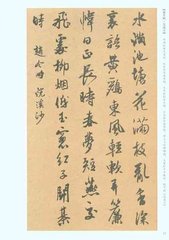 水滿池塘花滿枝亂香深
裏語黃鸝東風輕軟弄簾
幃日正長時春夢短燕交
飛處柳烟低玉窗紅子鬥棊
時
趙令畤 浣溪沙